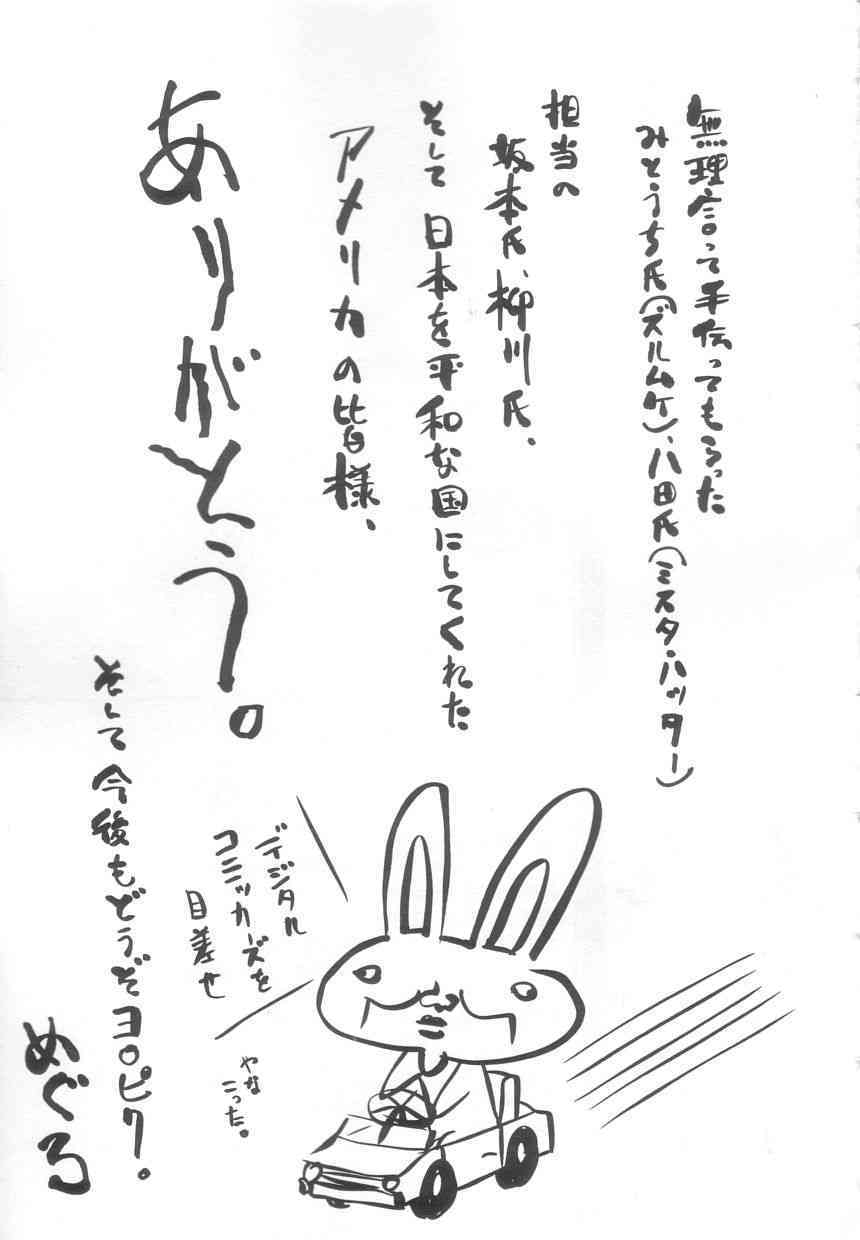 無理言って手伝ってもらった
みとうち氏(ズルムケ)、八田氏(ミスタ・ハッター)
担当の
坂本氏、柳川氏、
そして日本を平和な国にしてくれた
アメリカの皆様、
ありがとう。
そして今後もどうぞヨロピク。
めぐる
ディジタル
コミッカーズを
目差せ
やな
こった。